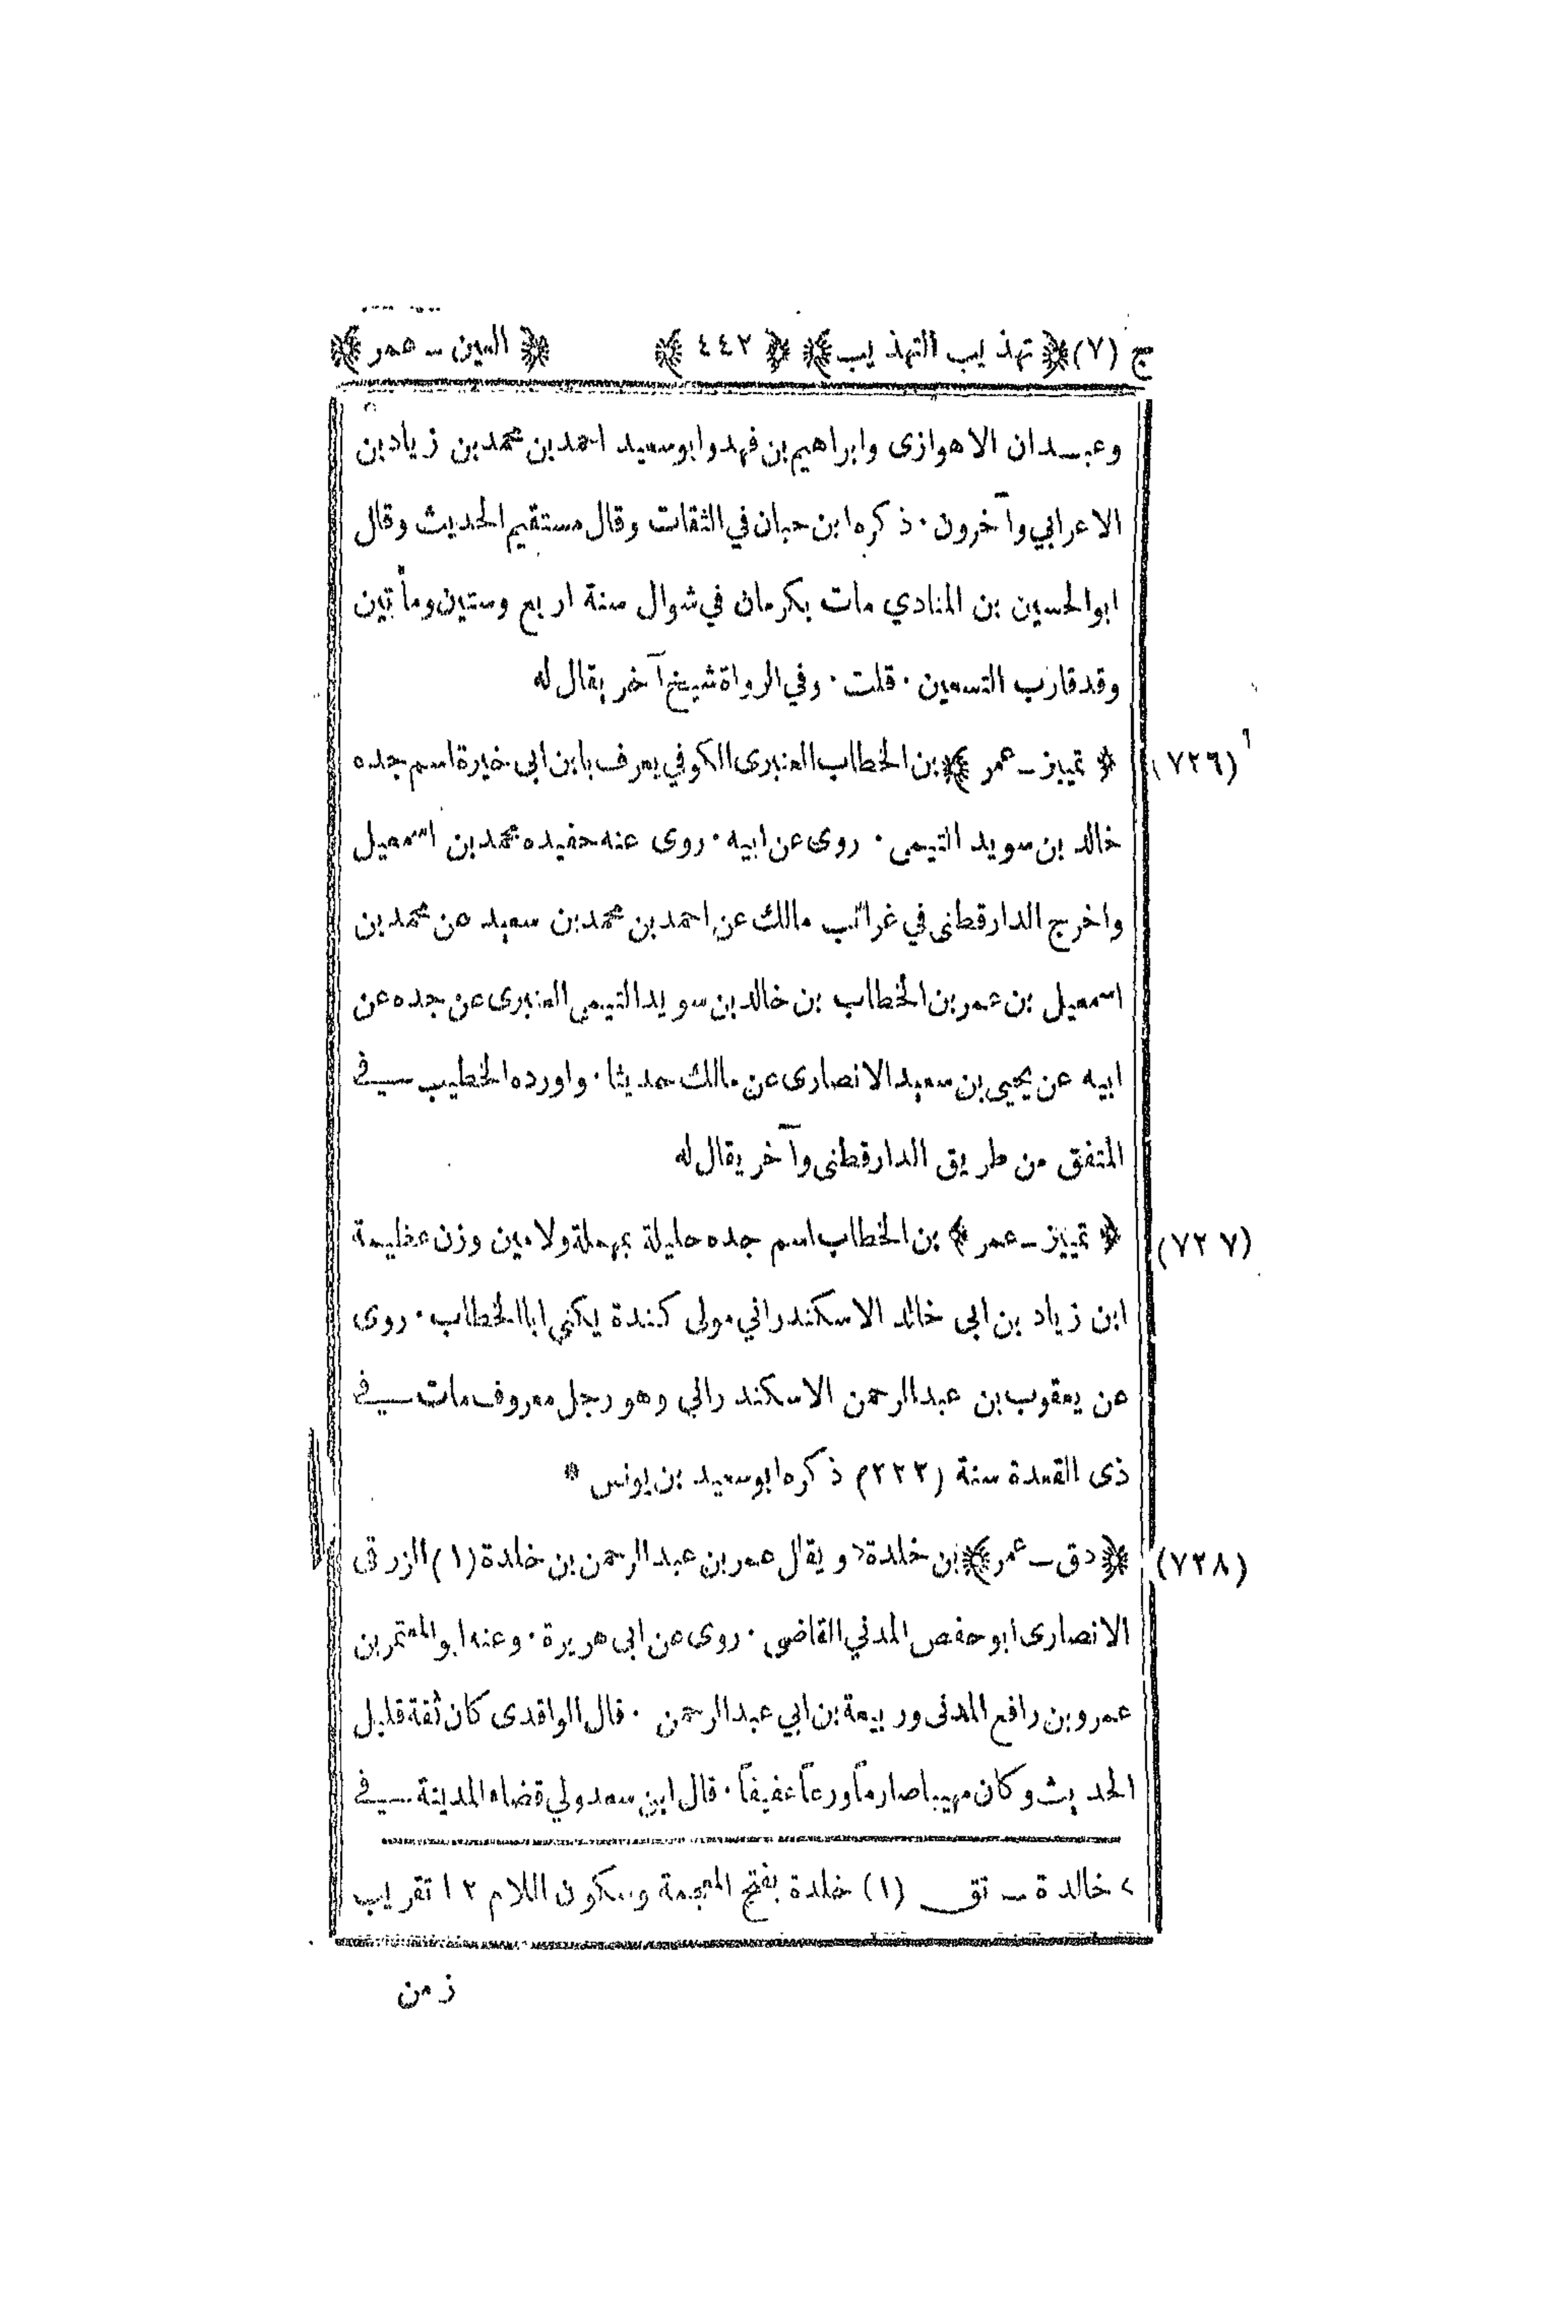 ج (٧) ﴿ تهذيب التهذيب ﴾ ﴿ ٤٤٢ ﴾ ﴿ العين – عمر ﴾
وعبدان الاهوازى وابراهيم بن فهد وابوسعيد احمد بن محمد بن زياد بن
الاعرابي وآخرون · ذكره ابن حبان في الثقات وقال مستقيم الحديث وقال
ابوالحسين بن المنادي مات بكرمان في شوال سنة اربع وستين ومأتين
وقد قارب التسعين · قلت · وفي الرواة شيخ آخر يقال له
(٧٢٦) ﴿ تمييز – عمر ﴾ بن الخطاب العنبرى الكوفي يعرف بابن ابى خيرة اسم جده
خالد بن سويد التيمى · روى عن ابيه · روى عنه حفيده محمد بن اسمعيل
واخرج الدارقطنى في غرائب مالك عن احمد بن محمد بن سعيد عن محمد بن
اسمعيل بن عمر بن الخطاب بن خالد بن سويد التيمى العنبرى عن جده عن
ابيه عن يحيى بن سعيد الانصارى عن مالك حديثا · واورده الخطيب في
المتفق من طريق الدارقطنى وآخر يقال له
(٧٢٧) ﴿ تمييز – عمر ﴾ بن الخطاب اسم جده حليلة بمهملة ولامين وزن عظيمة
ابن زياد بن ابى خالد الاسكندراني مولى كندة يكنى ابا الخطاب · روى
عن يعقوب بن عبدالرحمن الاسكندرالي وهو رجل معروف مات في
ذى القعدة سنة (٢٢٣) ذكره ابوسعيد بن يونس *
(٧٢٨) ﴿ دق – عمر ﴾ بن خلدة > ويقال عمر بن عبدالرحمن بن خلدة (١) الزرقى
الانصارى ابوحفص المدني القاضى · روى عن ابى هريرة · وعنه ابو المعتمر بن
عمرو بن رافع المدنى وربيعة بن ابي عبدالرحمن · قال الواقدى كان ثقة قليل
الحديث وكان مهيبا صارماً ورعاً عفيفاً · قال ابن سعد ولي قضاء المدينة في
> خالدة – تق (١) خلدة بفتح المعجمة وسكون اللام ١٢ تقريب
زمن